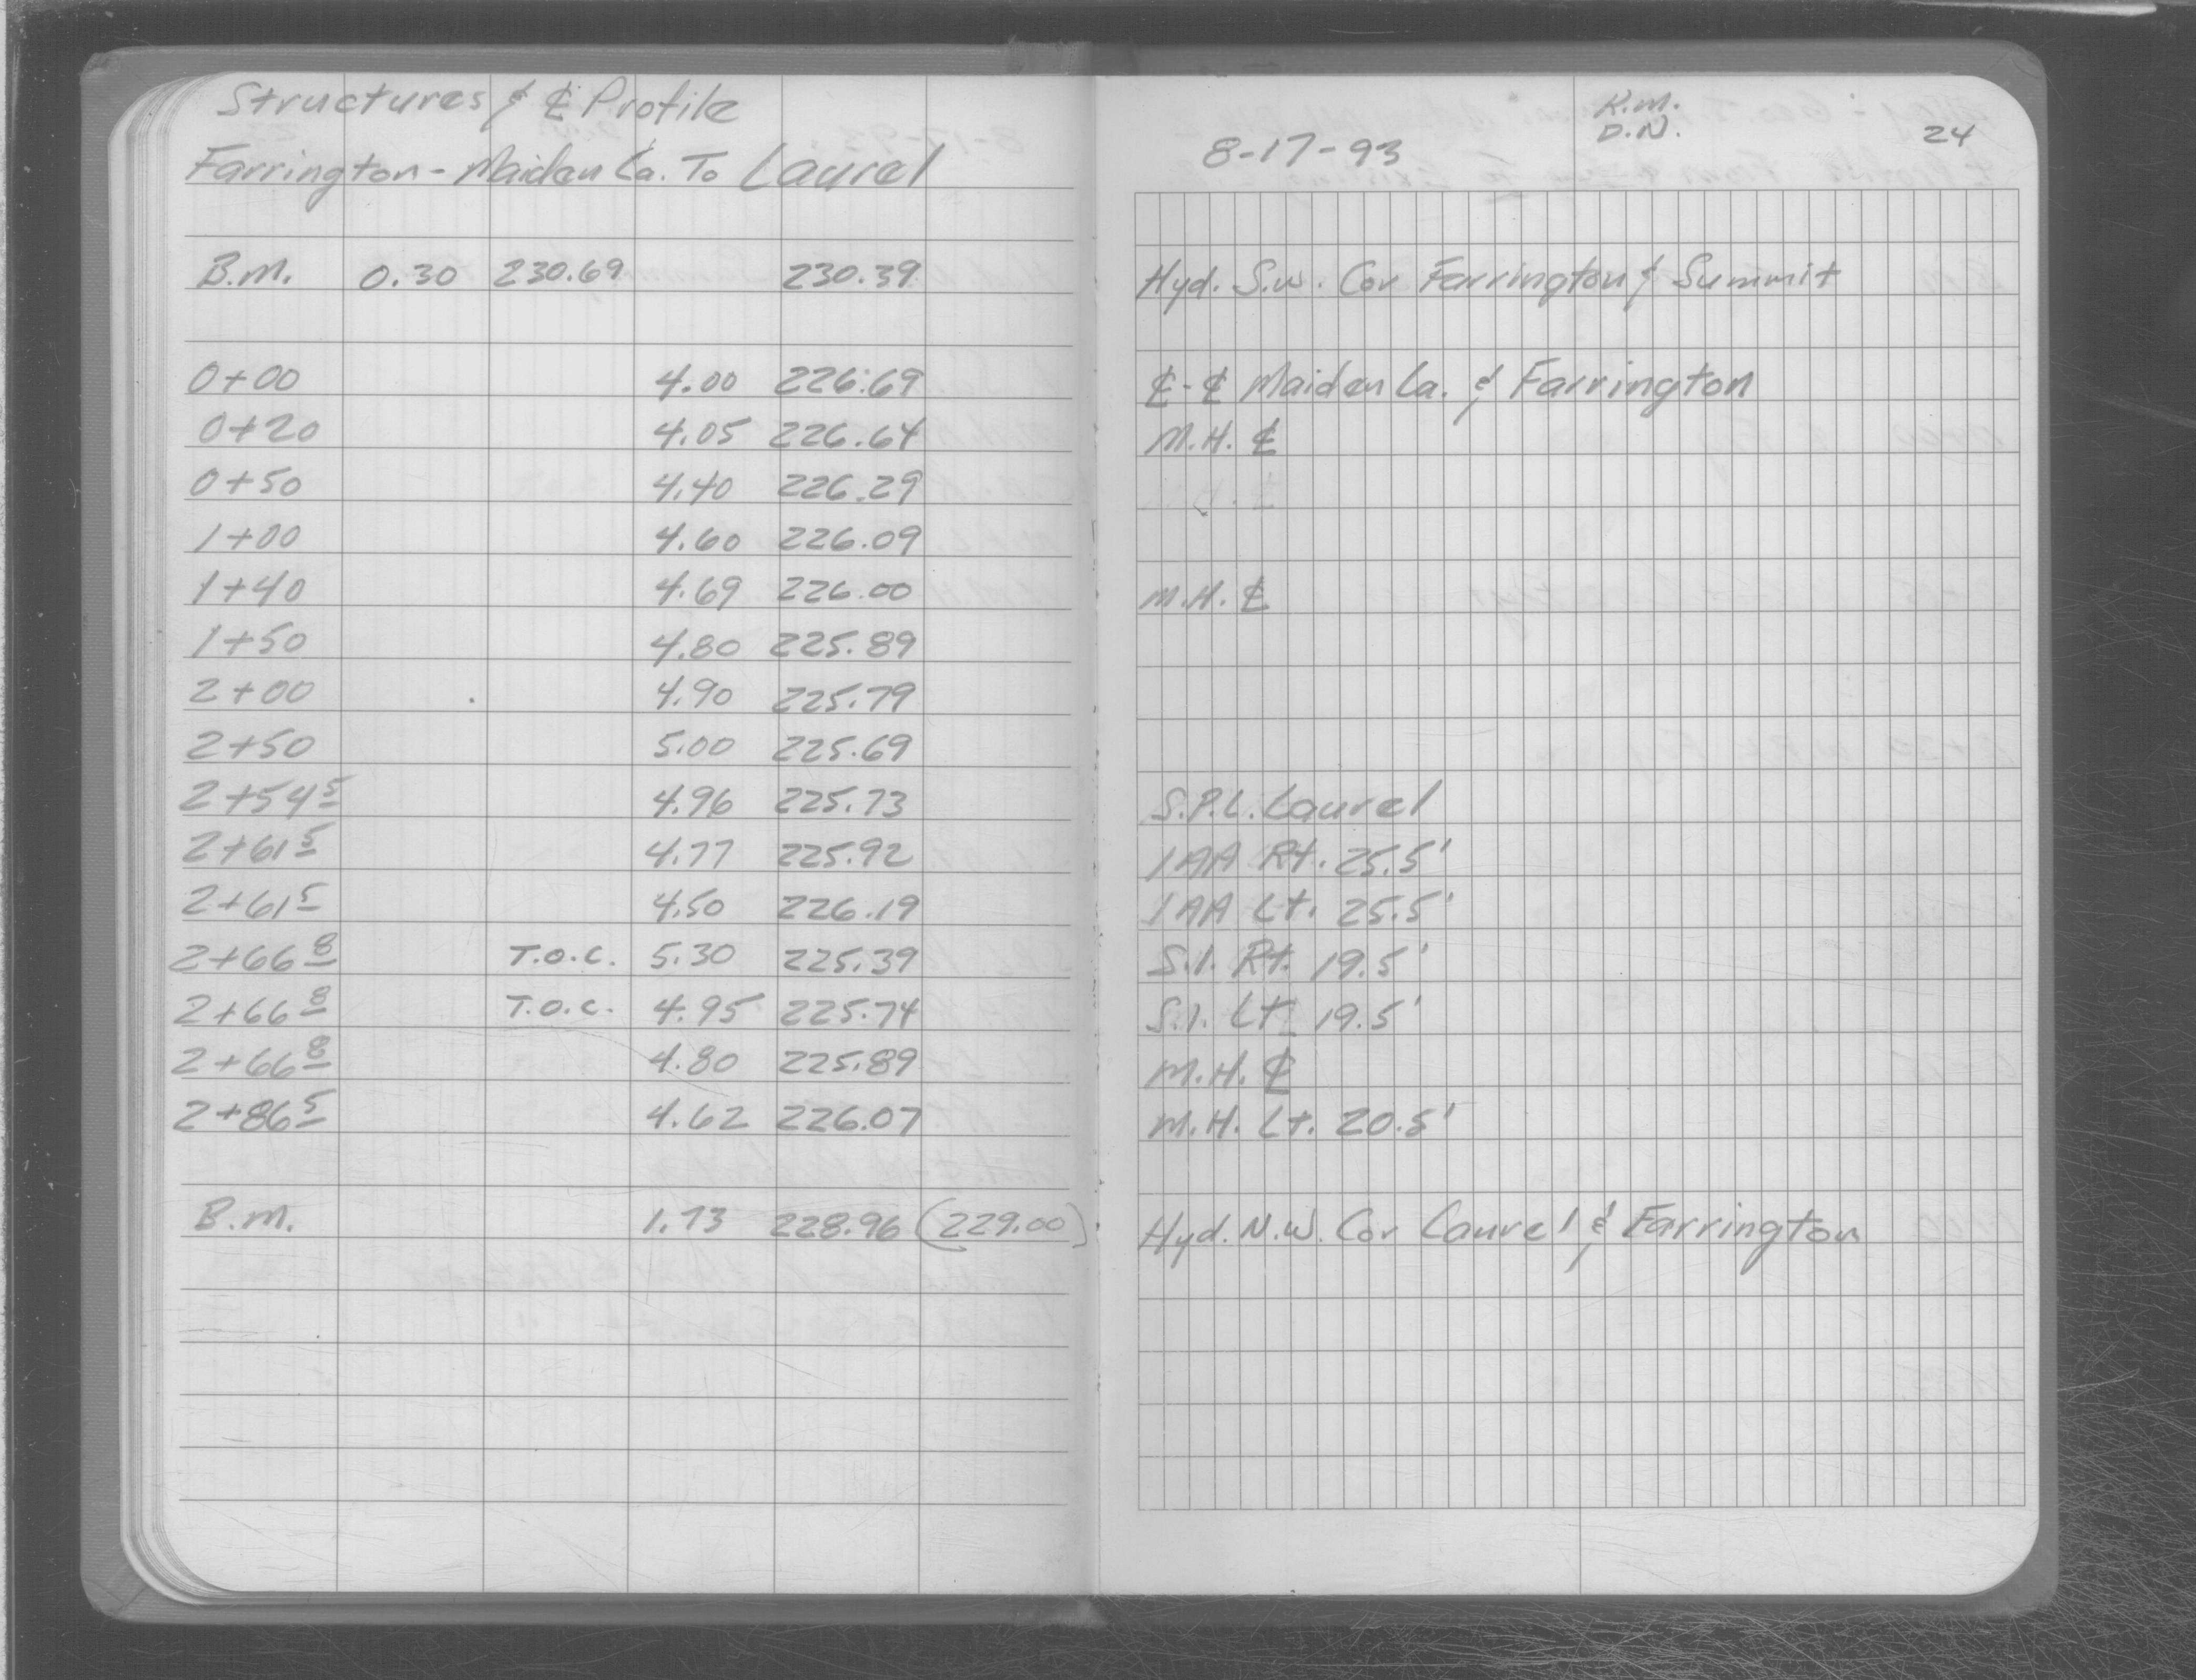 Structures & ℄ Profile
Farrington - Maiden La. To Laurel
B.M. 0.30 230.69 230.39
0+00 4.00 226.69
0+20 4.05 226.64
0+50 4.40 226.29
1+00 4.60 226.09
1+40 4.69 226.00
1+50 4.80 225.89
2+00 4.90 225.79
2+50 5.00 225.69
2+54⁵ 4.96 225.73
2+61⁵ 4.77 225.92
2+61⁵ 4.50 226.19
2+66⁸ T.O.C. 5.30 225.39
2+66⁸ T.O.C. 4.95 225.74
2+66⁸ 4.80 225.89
2+86⁵ 4.62 226.07
B.M. 1.73 228.96 (229.00)
K.M.
D.N.
8-17-93 24
Hyd. S.W. Cor Farrington & Summit
℄-℄ Maiden La. & Farrington
M.H. ℄
M.H. ℄
S.P.L. Laurel
1AA Rt. 25.5'
1AA Lt. 25.5'
S.I. Rt. 19.5'
S.I. Lt. 19.5'
M.H. ℄
M.H. Lt. 20.5'
Hyd. N.W. Cor Laurel & Farrington